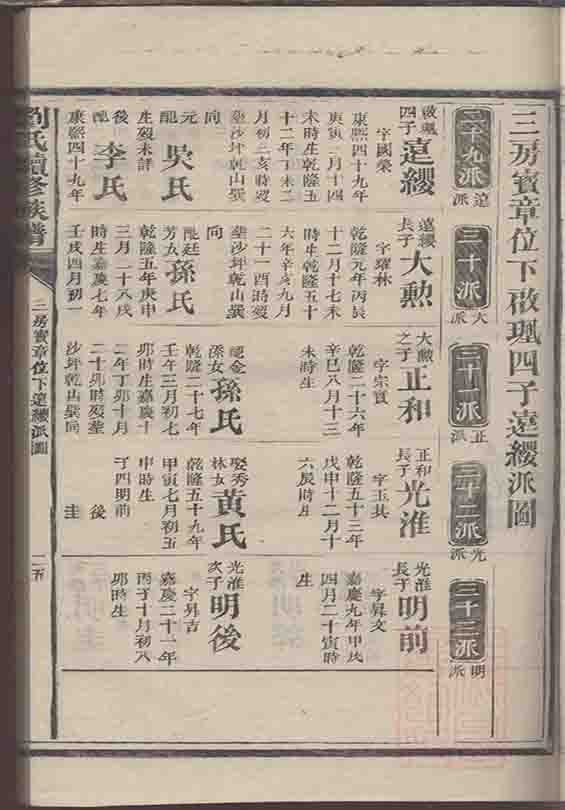 三房賓章位下啟珮四子遠纓派圖
二十九派
遠派
三十派
大派
三十一派
正派
三十二派
光派
三十三派
明派
啟珮四子
遠纓
字國榮
康熙四十九年
庚寅二月十四
未時生乾隆五
十二年丁未二
月初二亥時歿
塟沙坪乾山巽
向
元配
吳氏
生歿未詳
後配
李氏
康熙四十九年
遠纓長子
大勲
字耀林
乾隆元年丙辰
十二月十七未
時生乾隆五十
六年辛亥九月
二十一酉時歿
塟沙坪乾山巽
向
配廷芳女
孫氏
乾隆五年庚申
三月二十八戌
時生嘉慶七年
壬戌四月初一
大勲之子
正和
字宗實
乾隆二十六年
辛巳八月十三
未時生
配金孫女
孫氏
乾隆二十七年
壬午三月初七
卯時生嘉慶十
二年丁卯十月
二十卯時歿塟
沙坪乾山巽向
正和長子
光淮
字玉其
乾隆五十三年
戊申十二月十
六辰時生
娶秀林女
黃氏
乾隆五十九年
甲寅七月初五
申時生
子四明前
後
圭
光淮長子
明前
字昇文
嘉慶九年甲戌
四月二十寅時
生
光淮次子
明後
字昇吉
嘉慶二十一年
丙子十月初八
卯時生
劉氏續修族譜
三房賓章位下遠纓派圖
二五